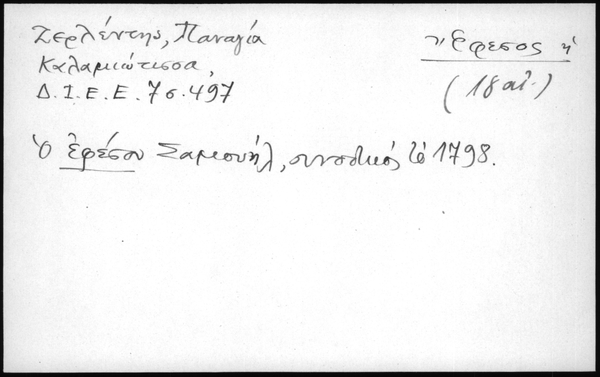 Ζερλέντης, Παναγία
Καλαμιώτισσα,
Δ.Ι.Ε.Ε. 7 σ. 497
Ἔφεσος ἡ
(18 αἰ.)
Ὁ Ἐφέσου Σαμουήλ, συνοδικός τὸ 1798.